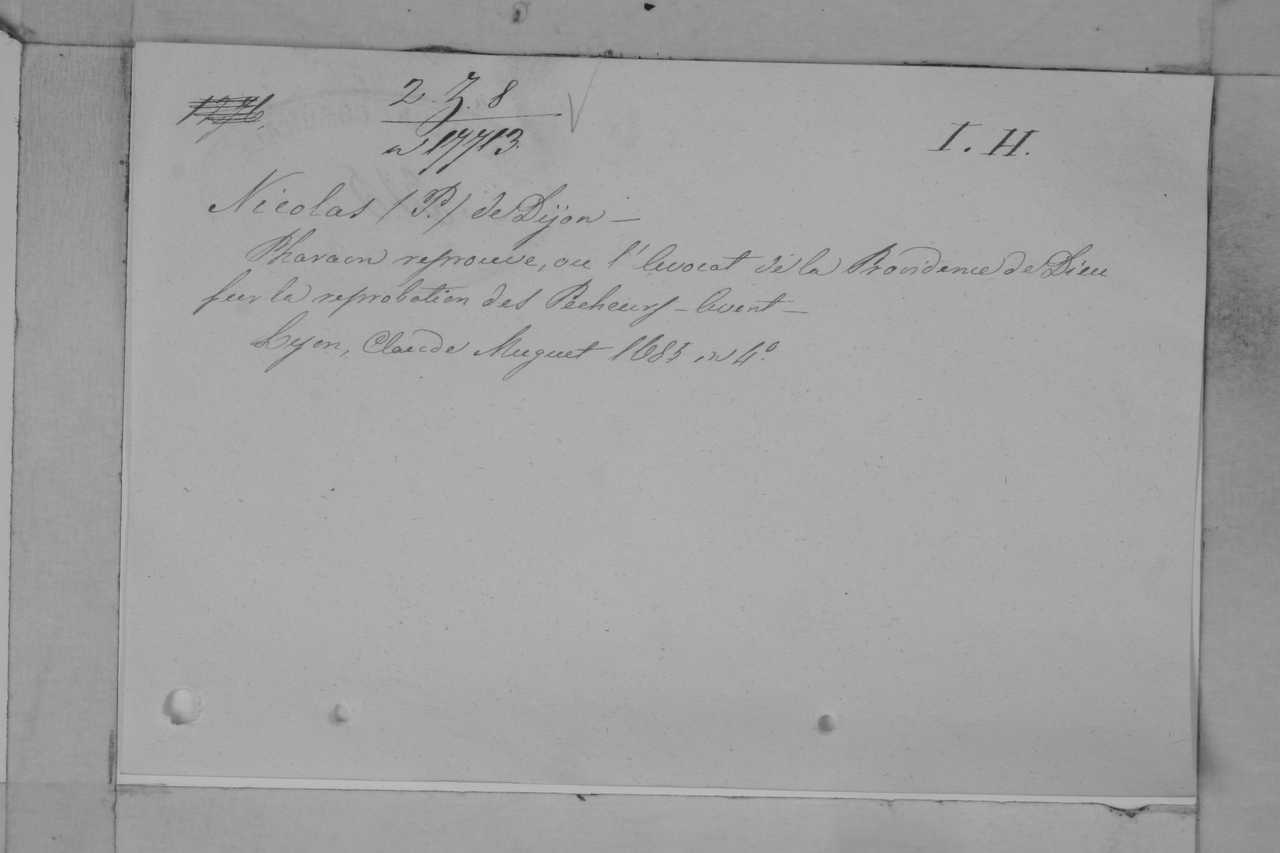 2. Z. 8
I. H.
17713
Nicolas (P.) de Dijon —
Pharaon reprouve, ou l'Avocat de la Providence de Dieu
sur la reprobation des Pecheurs — Avent —
Lyon, Claude Muguet 1685 in 4°.